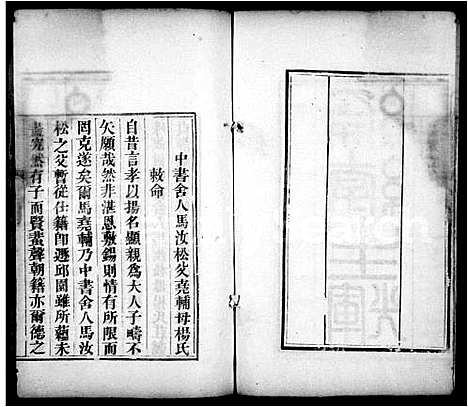 中書舍人馬汝松父堯輔母楊氏
敕命
自昔言孝以揚名顯親爲大人子疇不
欠願哉然非湛恩敷錫則情有所限而
罔克遂矣爾馬堯輔乃中書舍人馬汝
松之父暫從仕籍卽遯邱園雖所蘊未
盡究然有子而賢蜚聲朝籍亦爾德之